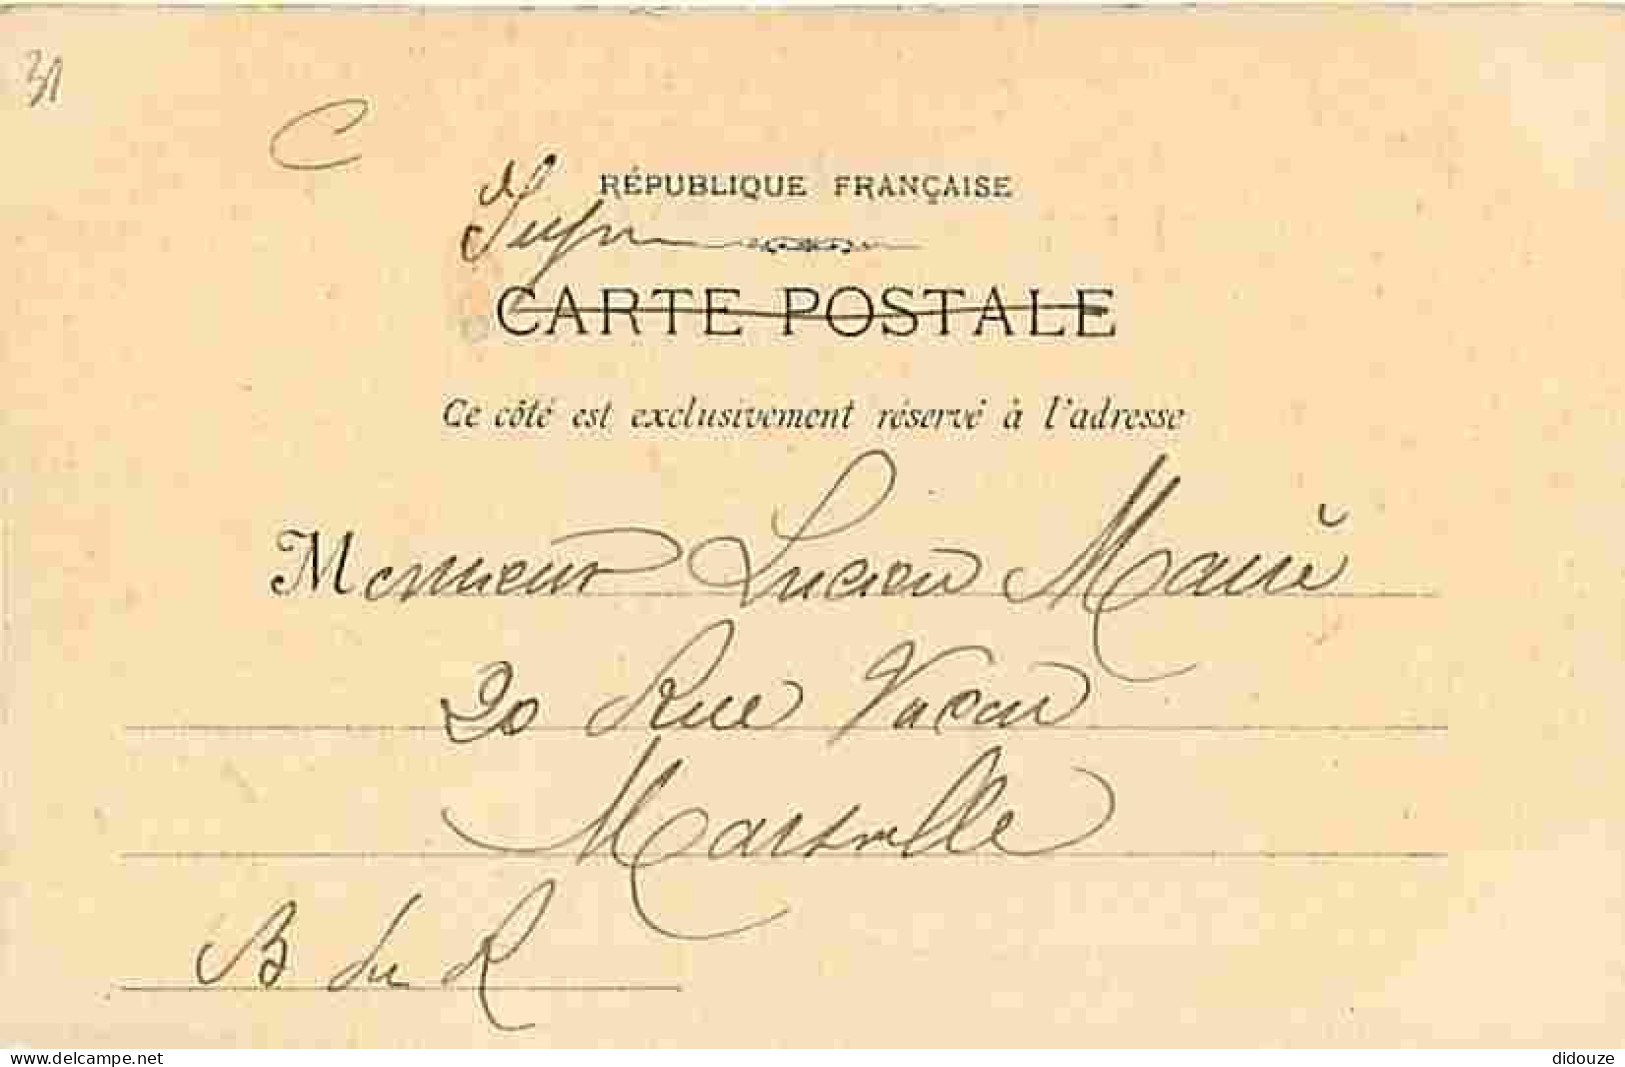 31
C
RÉPUBLIQUE FRANÇAISE
CARTE POSTALE
Ce côté est exclusivement réservé à l'adresse
Monsieur Lucien
20 Rue Vacon
Marseille
B du R
www.delcampe.net
didouze